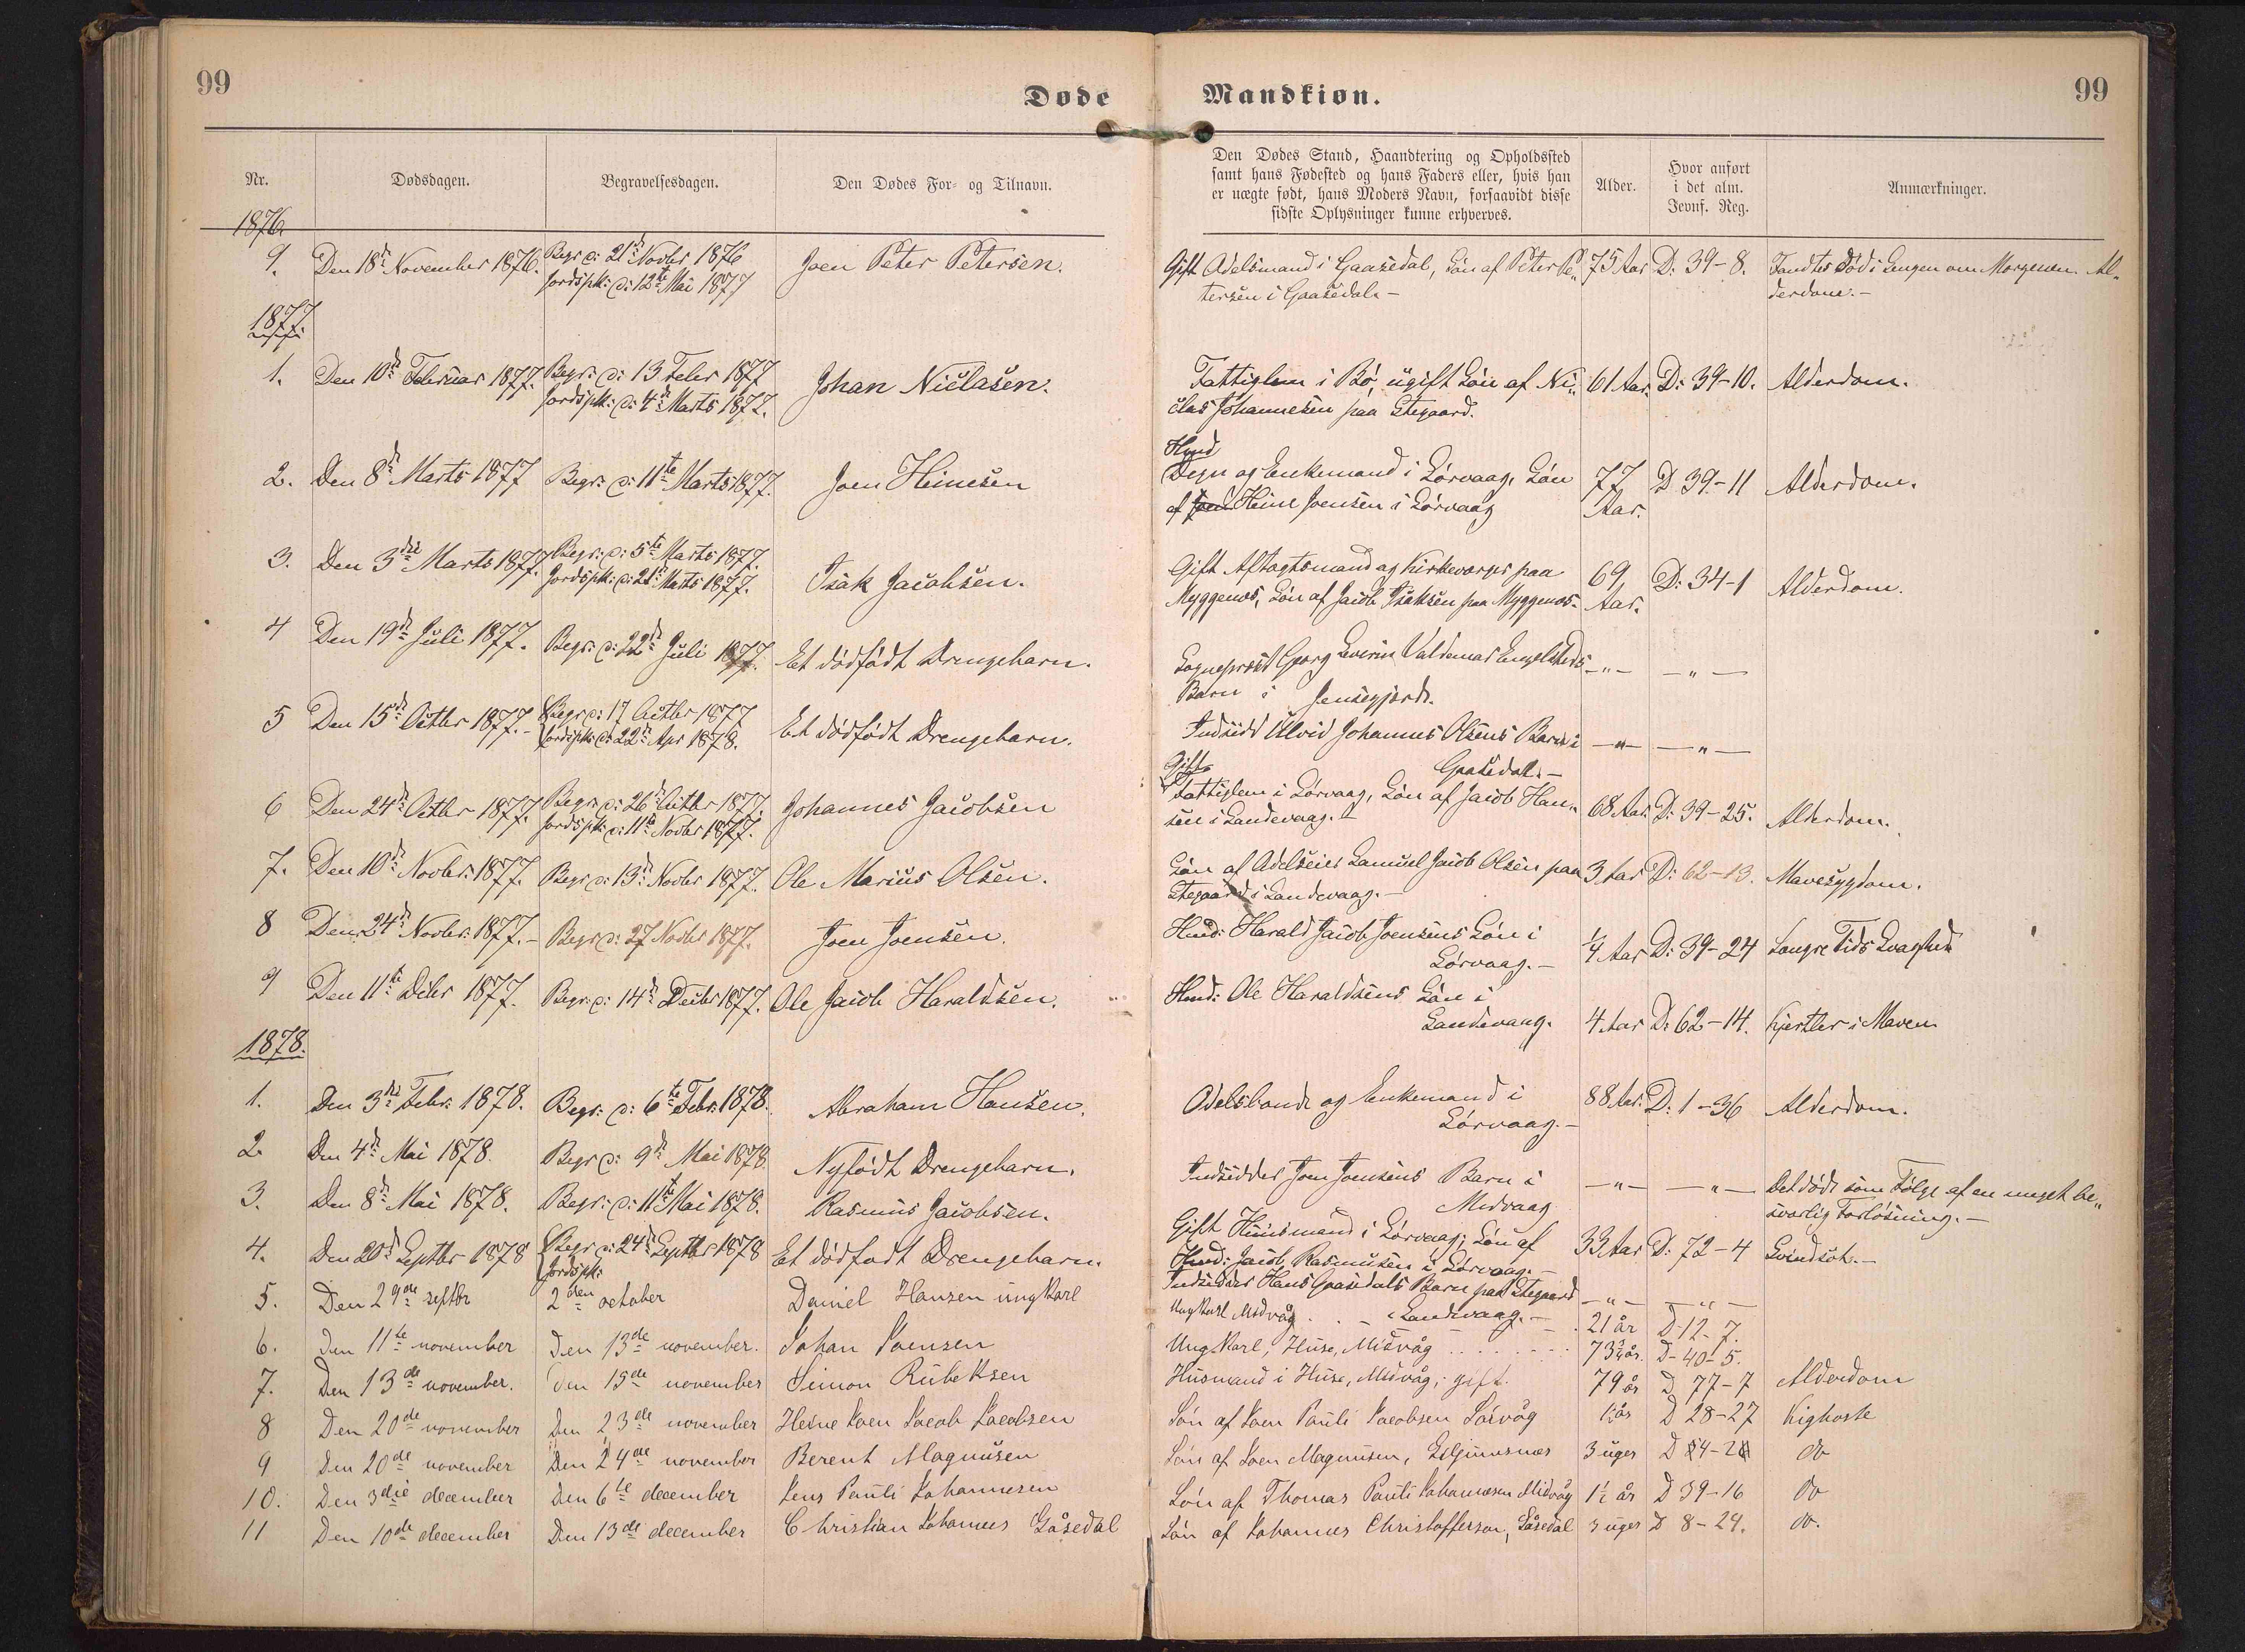 99
Døde
Mandkiøn.
99
Nr.
Dødsdagen.
Begravelsesdagen.
Den Dødes For- og Tilnavn.
Den Dødes Stand, Haandtering og Opholdssted
samt hans Fødested og hans Faders eller, hvis han
er uægte født, hans Moders Navn, forsaavidt disse
sidste Oplysninger kunne erhverves.
Alder.
Hvor anført
i det alm.
Jevnf. Reg.
Anmærkninger.
1876
9. Den 18d November 1876. Begr. d: 21d Novbr 1876 Joen Peter Petersen. Gift Odelsmand i Gaasedal, Søn af Peter Pe- 75 Aar D: 39-8. Fandtes død i Sengen om Morgenen. Al-
Jordspk: d: 12te Mai 1877 tersen i Gaasedal. - derdom. -
1877.
1. Den 10d Februar 1877. Begr: d: 13 Febr 1877 Johan Niclasen. Fattiglem i Bø, ugift Søn af Ni- 61 Aar. D: 39-10. Alderdom.
Jordspk: d: 4d Marts 1877. clas Johannesen paa Stegaard.
Hmd
2. Den 8d Marts 1877 Begr: d: 11te Marts 1877. Joen Heinesen Degn og Enkemand i Sørvaag, Søn 77 D 39-11 Alderdom.
af Joen Heine Joensen i Sørvaag Aar.
3. Den 3die Marts 1877. Begr: d: 5te Marts 1877. Isak Jacobsen. Gift Aftagtsmand og Kirkeværger paa 69 D: 34-1 Alderdom.
Jordspk: d: 21d Marts 1877. Myggenæs, Søn af Jacob Isaksen paa Myggenæs. Aar.
4 Den 19d Juli 1877. Begr: d: 22d Juli 1877. Et dødfødt Drengebarn. Sognepræst Georg Severin Valdemar Engelsteds - " - - " -
Barn i Jensegjerde.
5 Den 15d Octbr 1877. - Begr d: 17 Octbr 1877 Et dødfødt Drengebarn. Indsidd Ulvid Johannes Olsens Barn i - " - - " -
Jordspk: d: 22d Apr 1878. Gaasedal. -
Gift
6 Den 24d Octbr 1877. Begr: d: 26d Octbr 1877. Johannes Jacobsen Fattiglem i Sørvaag, Søn af Jacob Han- 68 Aar. D: 39-25. Alderdom.
Jordspk: d: 11te Novbr 1877. sen i Sandevaag. -
7. Den 10d Novbr. 1877. Begr d: 13d Novbr 1877. Ole Marius Olsen. Søn af Odelseier Samuel Jacob Olsen paa 3 Aar D: 62-13. Mavesygdom.
Stegaard i Sandevaag. -
8 Den 24d Novbr. 1877. - Begr d: 27 Novbr 1877. Joen Joensen. Hmd: Harald Jacob Joensens Søn i 1/4 Aar D: 39-24 Længre Tids Svaghed
Sørvaag. -
9 Den 11te Decbr 1877. Begr. d: 14d Decbr 1877. Ole Jacob Haraldsen. Hmd: Ole Haraldsens Søn i
Sandevaag. 4 Aar D: 62-14. Kjertler i Maven
1878.
1. Den 3die Febr. 1878. Begr: d: 6te Febr: 1878. Abraham Hansen. Odelsbonde og Enkemand i 88 Aar. D: 1-36 Alderdom.
Sørvaag. -
2. Den 4d Mai 1878. Begr d: 9d Mai 1878. Nyfødt Drengebarn. Indsidder Joen Joensens Barn i - " - - " - Det døde som Følge af en meget be-
Midvaag sværlig Forløsning. -
3. Den 8d Mai 1878. Begr: d: 11te Mai 1878. Rasmus Jacobsen. Gift Huusmand i Sørvaag; Søn af 33 Aar D: 72-4 Svindsot. -
Hmd: Jacob Rasmusen i Sørvaag. -
4. Den 20d Septbr 1878 Begr d: 24d Septbr 1878 Et dødfødt Drengebarn. Indsidder Hans Gaasedals Barn paa Stegaard - " - - " -
Jordspk: i Sandevaag. -
5. Den 29de septbr 2den october Daniel Hansen ungkarl Ungkarl Midvåg . . - 21 år D-12-7.
6. Den 11te november Den 13de november. Johan Joensen Ungkarl, Huse, Midvåg . . . . . . . 73 3/4 år. D-40-5.
7. Den 13de november. Den 15de november Simon Rübeksen Husmand i Huse, Midvåg, gift. 79 år D 77-7 Alderdom
8 Den 20de november Den 23de november Heine Joen Jacob Jacobsen Søn af Joen Pauli Jacobsen Sørvåg 1/2 år D 28-27 Kighoste
9 Den 20de november Den 24de november Berent Magnusen Søn af Joen Magnusen, 3 uger do
10. Den 3die december Den 6te december Jens Pauli Johannesen Søn af Thomas Pauli Johannesen Midvåg 1 1/2 år D 39-16 do
11 Den 10de december Den 13de december Christian Johannes Gåsedal Søn af Johannes Christoffersen, Gåsedal 3 uger D 8-29. do.